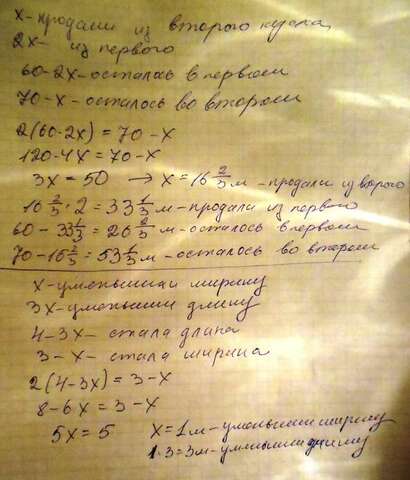 x-продали из второго куска
2x- из первого
60-2x-осталось в первом
70-x-осталось во втором
2(60-2x) = 70-x
120-4x = 70-x
3x = 50 → x = 16 2/3 м - продали из второго
16 2/3 · 2 = 33 1/3 м - продали из первого
60 - 33 1/3 = 26 2/3 м - осталось в первом
70-16 2/3 = 53 1/3 м - осталось во втором
x-уменьшили ширину
3x-уменьшили длину
4-3x- стала длина
3-x- стала ширина
2(4-3x) = 3-x
8-6x = 3-x
5x = 5 x = 1м - уменьшили ширину
1·3=3м-уменьшили длину